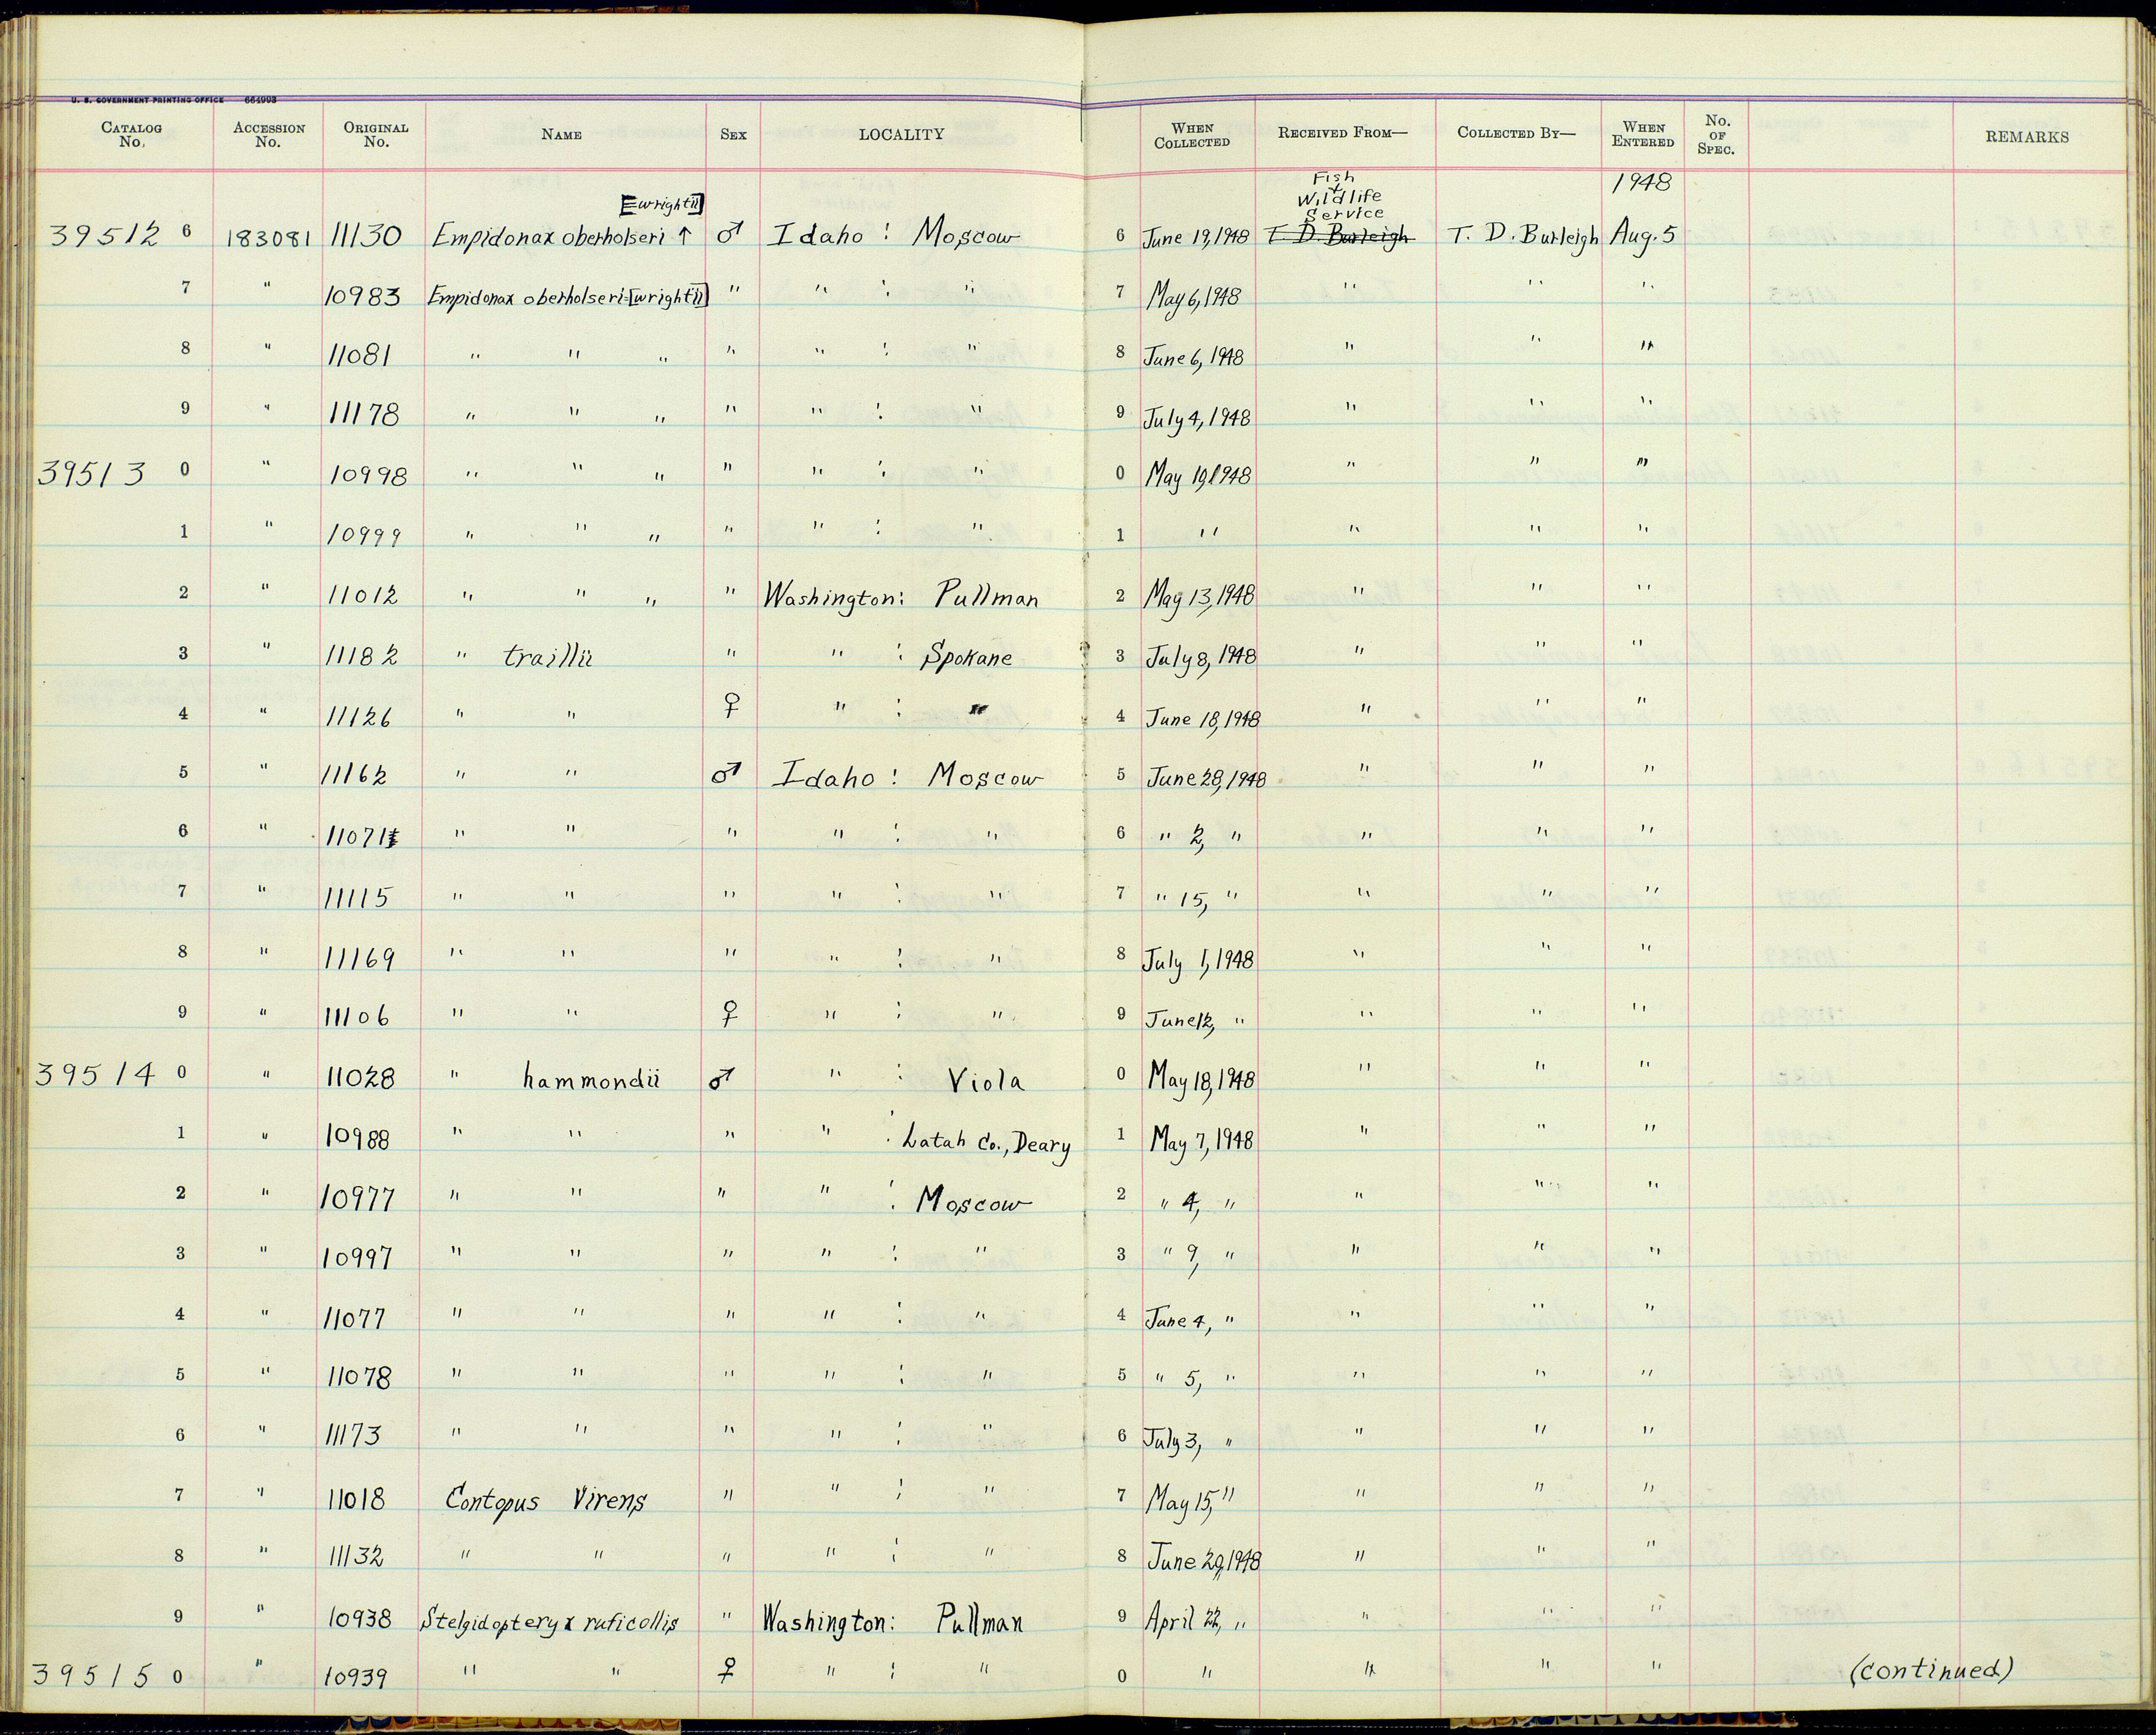 U. S. GOVERNMENT PRINTING OFFICE 664993
CATALOG No. ACCESSION No. ORIGINAL No. NAME SEX LOCALITY WHEN COLLECTED RECEIVED FROM— COLLECTED BY— WHEN ENTERED No. OF SPEC. REMARKS
Fish & Wildlife Service 1948
[=wrightii]
39512 6 183081 11130 Empidonax oberholseri ↑ ♂ Idaho : Moscow 6 June 19, 1948 T. D. Burleigh T. D. Burleigh Aug. 5
7 " 10983 Empidonax oberholseri=[wrightii] " " : " 7 May 6, 1948 " " "
8 " 11081 " " " " " : " 8 June 6, 1948 " " "
9 " 11178 " " " " " : " 9 July 4, 1948 " " "
39513 0 " 10998 " " " " " : " 0 May 19, 1948 " " "
1 " 10999 " " " " " : " 1 " " " "
2 " 11012 " " " " Washington: Pullman 2 May 13, 1948 " " "
3 " 11182 " traillii " " : Spokane 3 July 8, 1948 " " "
4 " 11126 " " ♀ " : " 4 June 18, 1948 " " "
5 " 11162 " " ♂ Idaho : Moscow 5 June 28, 1948 " " "
6 " 11071 " " " " : " 6 " 2, " " " "
7 " 11115 " " " " : " 7 " 15, " " " "
8 " 11169 " " " " : " 8 July 1, 1948 " " "
9 " 11106 " " ♀ " : " 9 June 12, " " " "
39514 0 " 11028 " hammondii ♂ " : Viola 0 May 18, 1948 " " "
1 " 10988 " " " " : Latah Co., Deary 1 May 7, 1948 " " "
2 " 10977 " " " " : Moscow 2 " 4, " " " "
3 " 10997 " " " " : " 3 " 9, " " " "
4 " 11077 " " " " : " 4 June 4, " " " "
5 " 11078 " " " " : " 5 " 5, " " " "
6 " 11173 " " " " : " 6 July 3, " " " "
7 " 11018 Contopus Virens " " : " 7 May 15, " " " "
8 " 11132 " " " " : " 8 June 20, 1948 " " "
9 " 10938 Stelgidopteryx ruficollis " Washington: Pullman 9 April 22, " " " "
39515 0 " 10939 " " ♀ " : " 0 " " " " (continued)